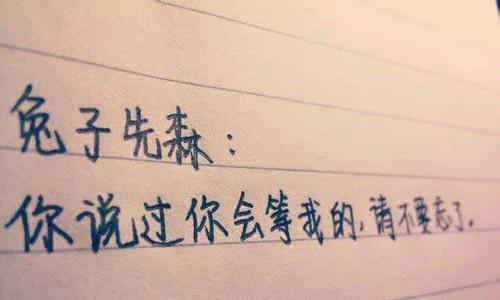 兔子先森:
你说过你会等我的,请不要忘了.